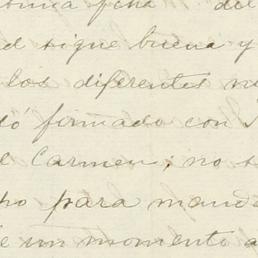 fcha del
d sigue buena y
los diferentes
do firmado con
el Carmen; no s
ho para manda
e un momento a